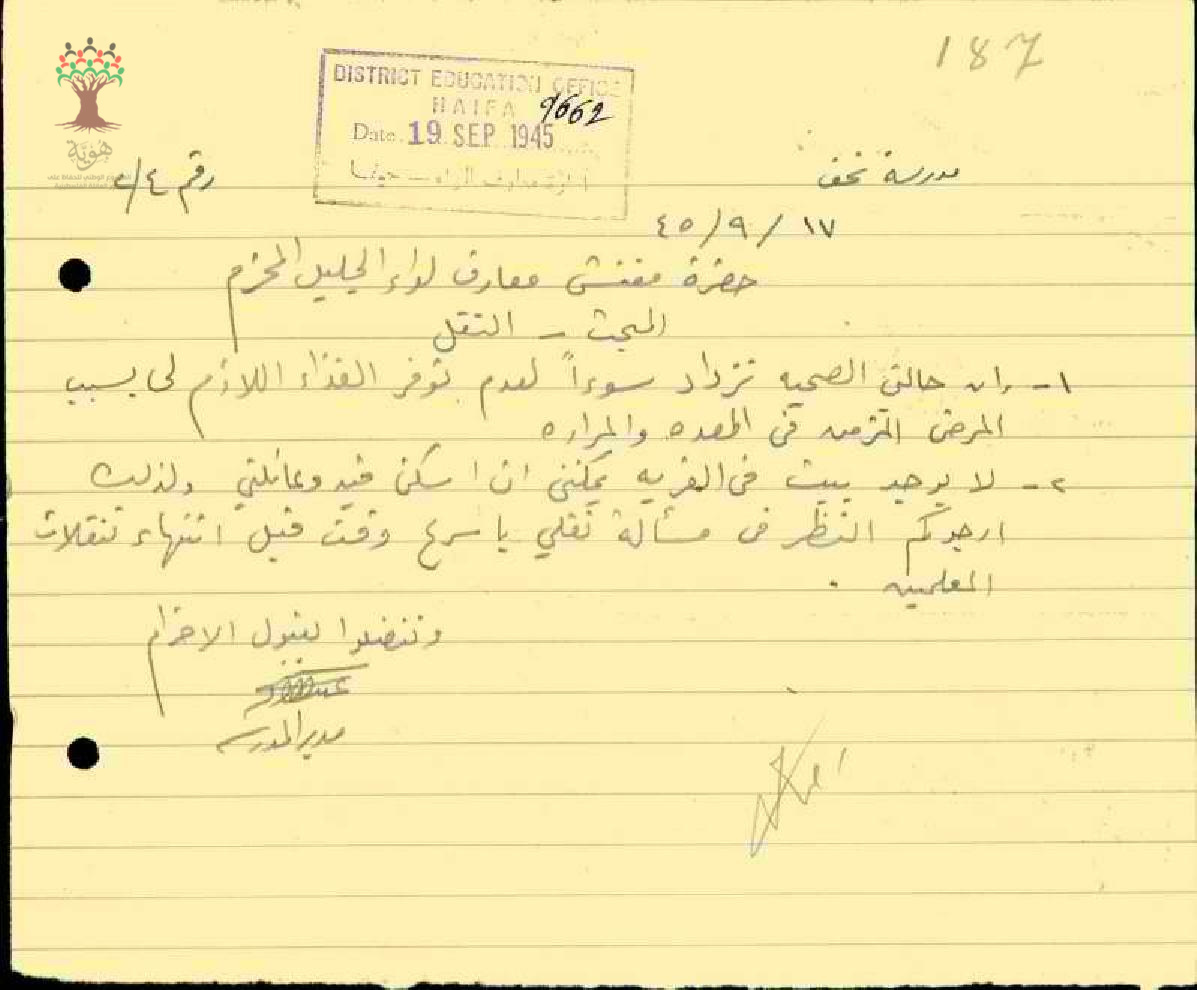 187
DISTRICT EDUCATION OFFICE
HAIFA
9662
Date. 19 SEP. 1945
هوية
مدرسة نحف
رقم ٤/٢
١٧/٩/٤٥
حضرة مفتش معارف لواء الجليل المحترم
المبحث - النقل
١- ان حالتي الصحيه تزداد سوءاً لعدم توفر الغذاء اللازم لي بسبب
المرض المزمن في المعده والمراره
٢- لا يوجد بيت في القريه يمكنني ان اسكن فيه وعائلتي ولذلك
ارجوكم النظر في مسألة نقلي باسرع وقت قبل انتهاء تنقلات
المعلمين .
وتفضلوا بقبول الاحترام
مدير المدرسه